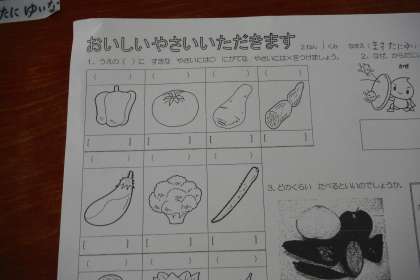 たに ゆいな
おいしいやさいいただきます
2ねん 1くみ なまえ
1. うえの( )に すきな やさいには○ にがてな やさいには×をつけましょう。
2. なぜ、からだに
3. どのくらい たべるといいのでしょうか。